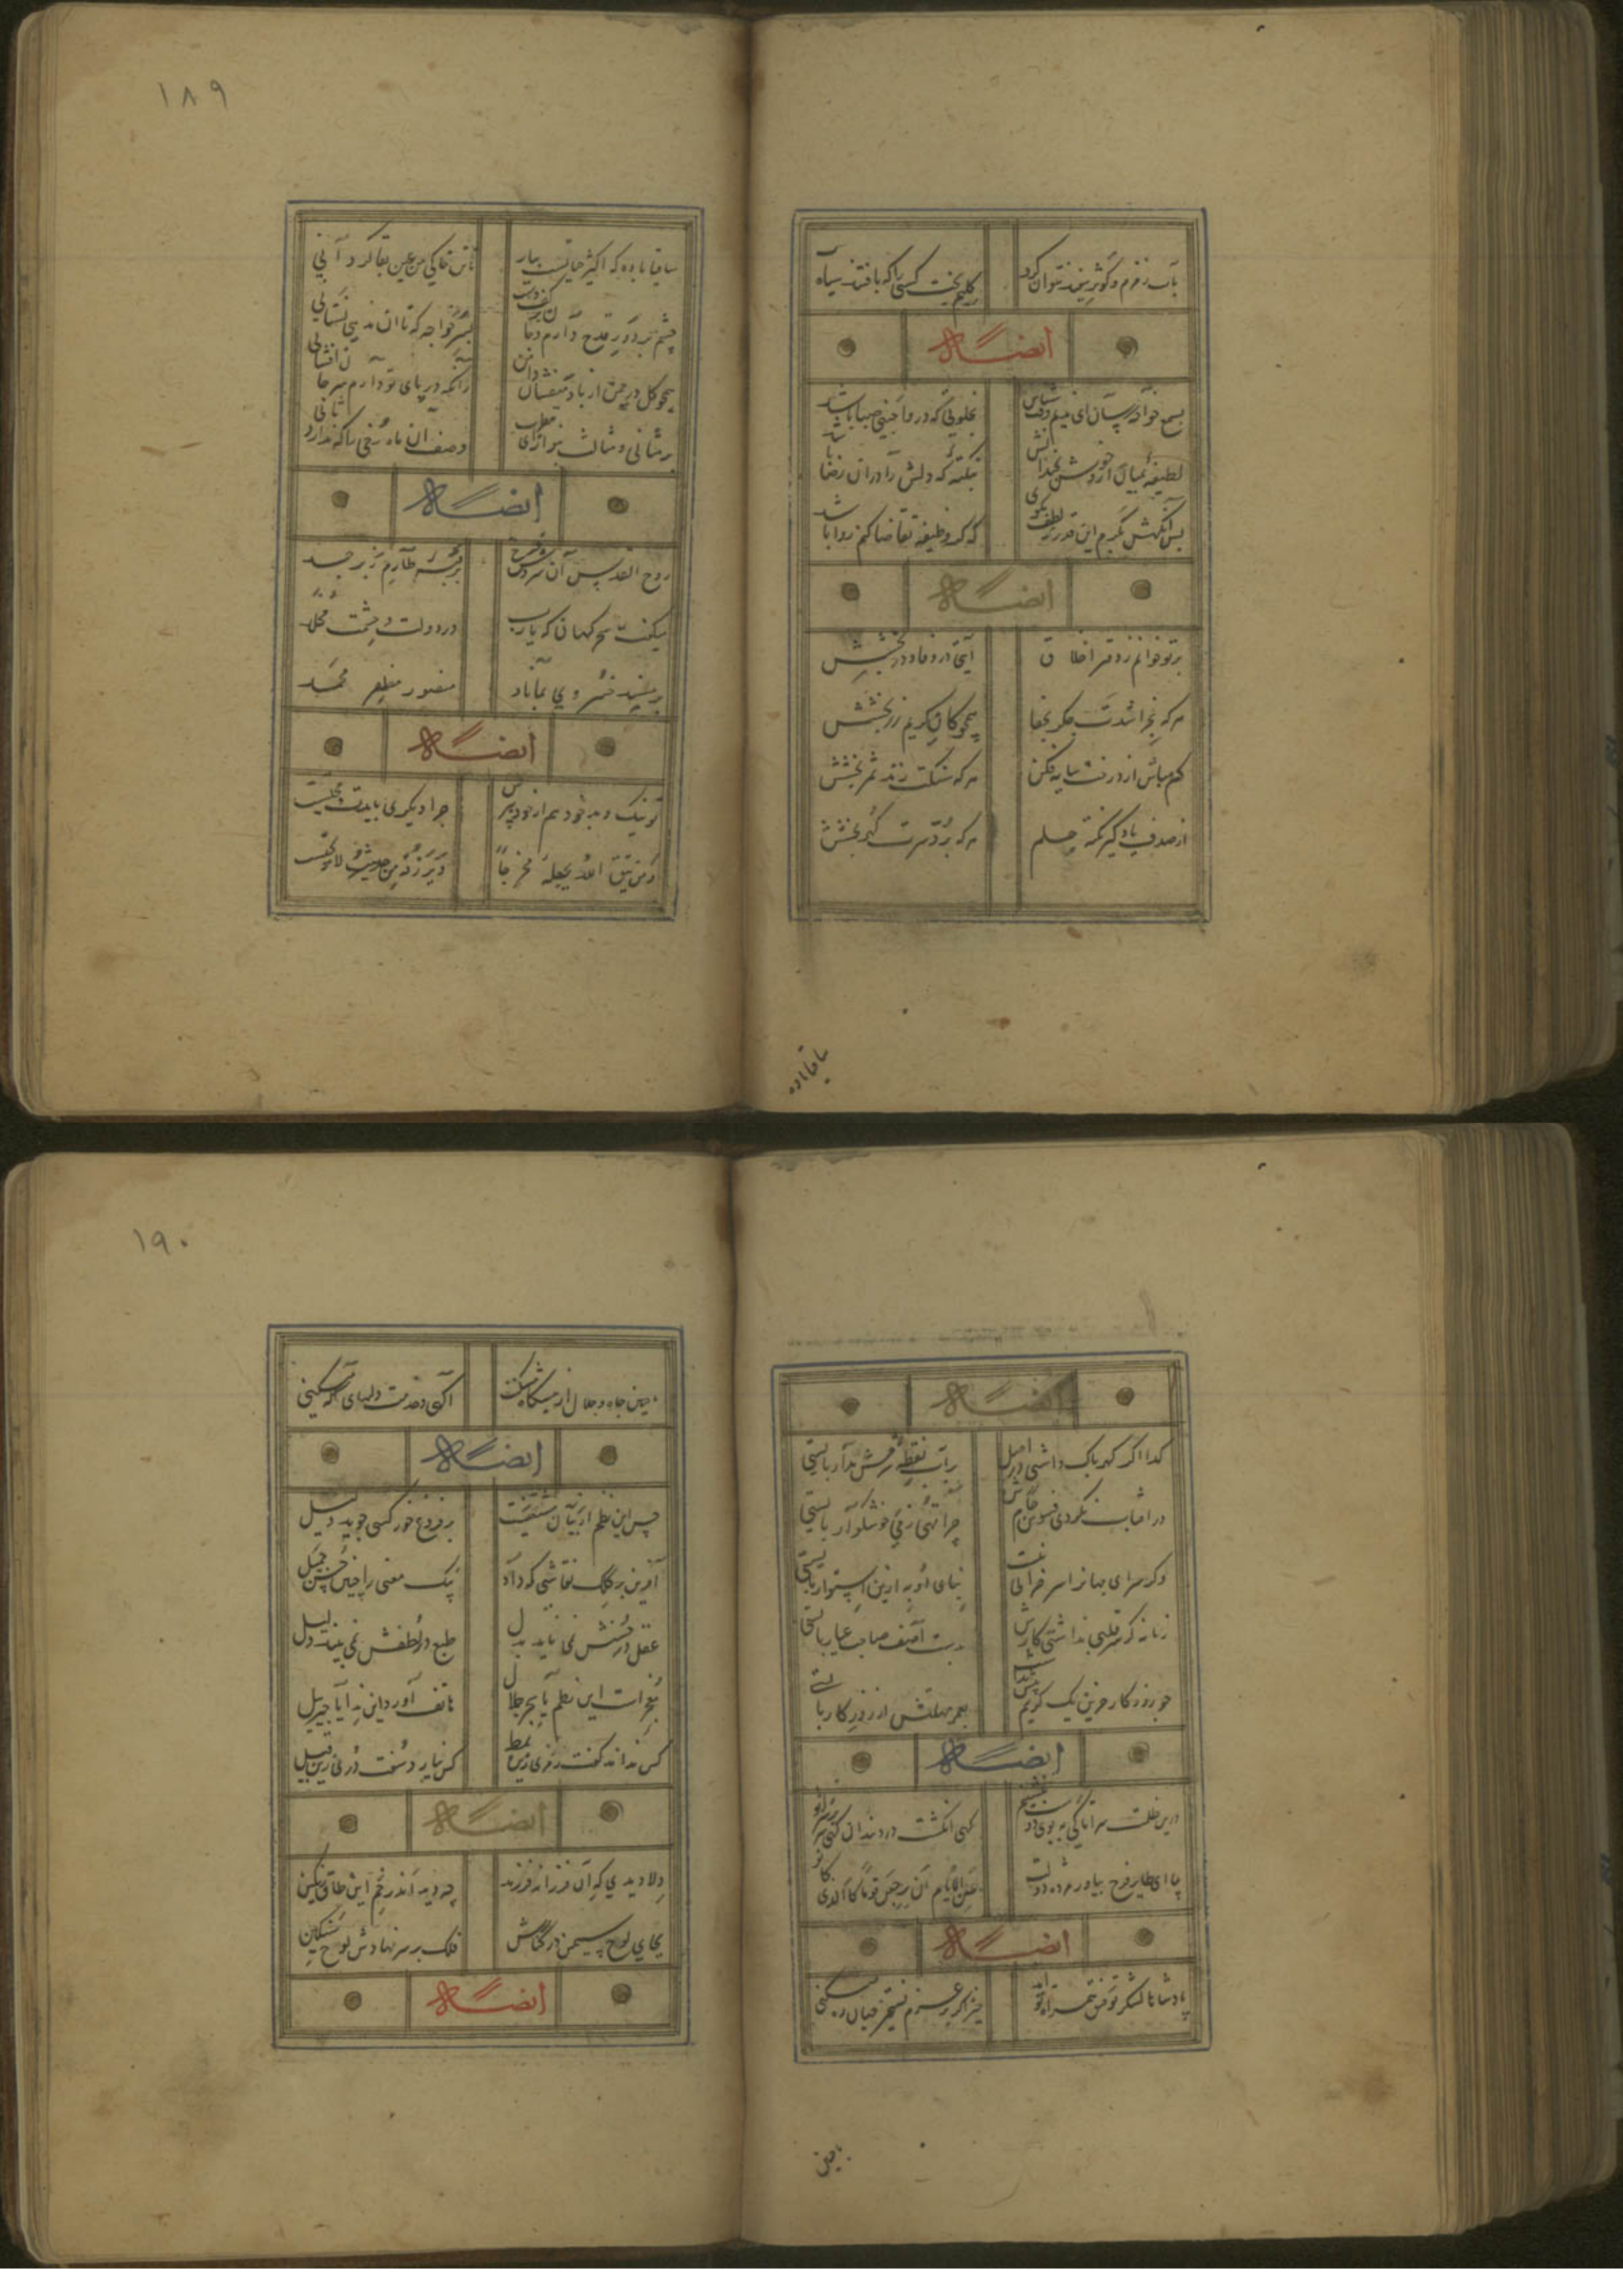 بآب زمزم و کوثر سفید نتوان کرد
گلیم بخت کسی را که بافتند سیاه
ایضاً له
بسمع خواجه رسان ای ندیم وقت شناس
بخلوتی که درو اجنبی صبا باشد
لطیفهٔ بمیان آر و خوش بخندانش
بنکتهٔ که دلش را در آن رضا باشد
پس آنگهش ز کرم این قدر بلطف بگوی
که گر وظیفه تقاضا کنم روا باشد
ایضاً له
بر تو خوانم ز دفتر اخلاق
آیتی در وفا و در بخشش
هر که بخراشدت جگر بجفا
همچو کان کریم زر بخشش
کم مباش از درخت سایه فکن
هر که سنگت زند ثمر بخشش
از صدف یاد گیر نکته حلم
هر که برّد سرت گهر بخشش
ساقیا باده
۱۸۹
ساقیا باده که اکسیر حیاتست بیار
تا تن خاکی من عین بقا گردانی
چشم بر دور قدح دارم و جان بر کف دست
بسر خواجه که تا آن ندهی نستانی
همچو گل در چمن از باد میفشان دامن
زانکه در پای تو دارم سر جان افشانی
بر مثانی و مثالث بنواز ای مطرب
وصف آن ماه رخی را که ندارد ثانی
ایضاً له
روح القدس آن سروش فرخ
بر قبه طارم زبرجد
میگفت سحر گهان که یارب
در دولت و حشمت مخلد
بر مسند خسروی بماناد
منصور مظفر محمد
ایضاً له
تو نیک و بد خود هم از خود بپرس
چرا دیگری بایدت محتسب
و من یتق الله یجعل له مخرجاً
و یرزقه من حیث لا یحتسب
ایضاً له
گدا اگر گهر پاک داشتی در اصل
بر آب نقطهٔ شرمش مدار بایستی
در آفتاب نکردی فسوس جام زرش
چرا تهی ز می خوشگوار بایستی
وگر سرای جهانرا سر خرابی نیست
بنای او به ازین استوار بایستی
زمانه گر سر قلبی نداشتی کارش
بدست آصف صاحب عیار بایستی
چو روزگار جزین یک کریم بیش نداشت
بعمر مهلتش از روزگار بایستی
ایضاً له
درین ظلمت سرا تا کی به بوی دوست بنشینم
گهی انگشت در دندان گهی سر بر سر زانو
بیا ای طایر فرخ بیاور مژده دولت
عسی الایام ان یرجعن قوماً کالذی کانوا
ایضاً له
پادشاها لشکر توفیق همراه تواند
خیز اگر بر عزم تسخیر جهان ره میکنی
با چنین
۱۹۰
با چنین جاه و جلال از پیشگاه سلطنت
آگهی و خدمت دلهای آگه میکنی
ایضاً له
حسن این نظم از بیان مستغنیست
بر فروغ خور کسی جوید دلیل
آفرین بر کلک نقاشی که داد
بکر معنی را چنین حسن جمیل
عقل در حسنش نمی یابد بدل
طبع در لطفش نمی بیند بدیل
معجزات این نظم یا سحر حلال
هاتف آورد این ندا یا جبرئیل
کس نداند گفت رمزی زین نمط
کس نیارد سفت درّی زین قبیل
ایضاً له
دلا دیدی که آن فرزانه فرزند
چه دید اندر خم این طاق رنگین
بجای لوح سیمین در کنارش
فلک بر سر نهادش لوح سنگین
ایضاً له